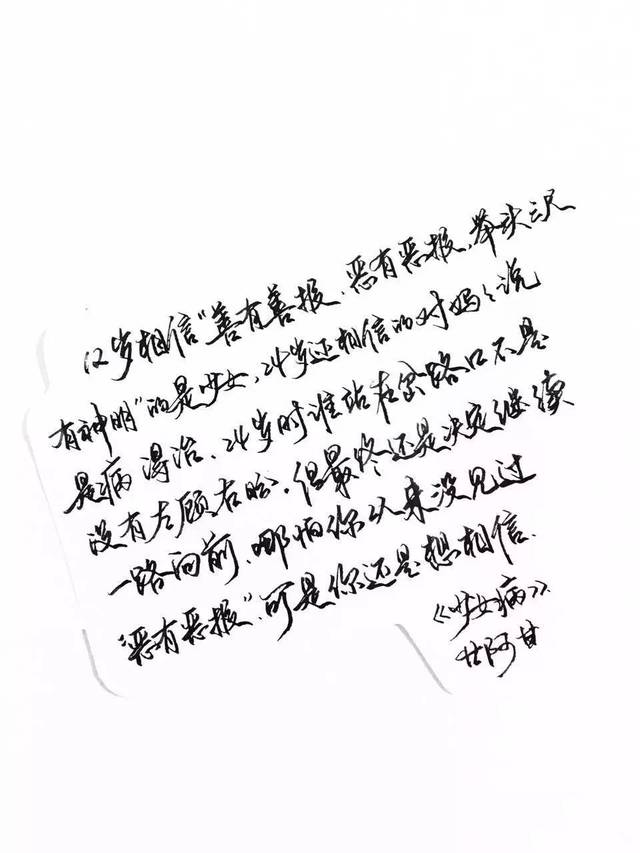 12岁相信“善有善报、恶有恶报、举头三尺
有神明”的是少女，24岁还相信的对妈妈说
是病得治、24岁时谁站在岔路口不是
没有左顾右盼，但最终还是决定继续
一路向前、哪怕你从来没见过
恶有恶报”、可是你还是想相信、
《少女病》
廿阿甘